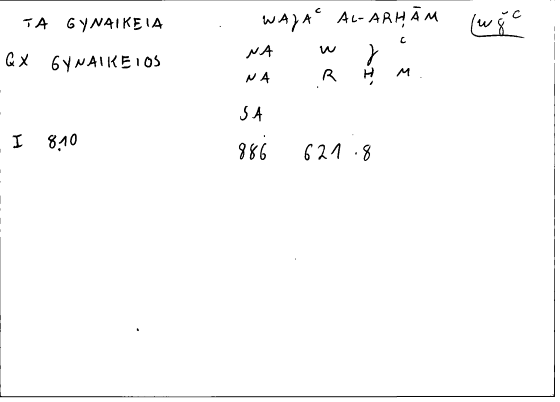 TA GYNAIKEIA WAJAᶜ AL-ARḤĀM (wǧᶜ
GX GYNAIKEIOS NA W J ᶜ
NA R Ḥ M
SA
I 8.10 886 621.8